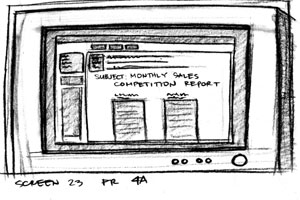 SUBJECT: MONTHLY SALES
COMPETITION REPORT
SCREEN 23 FR 4A